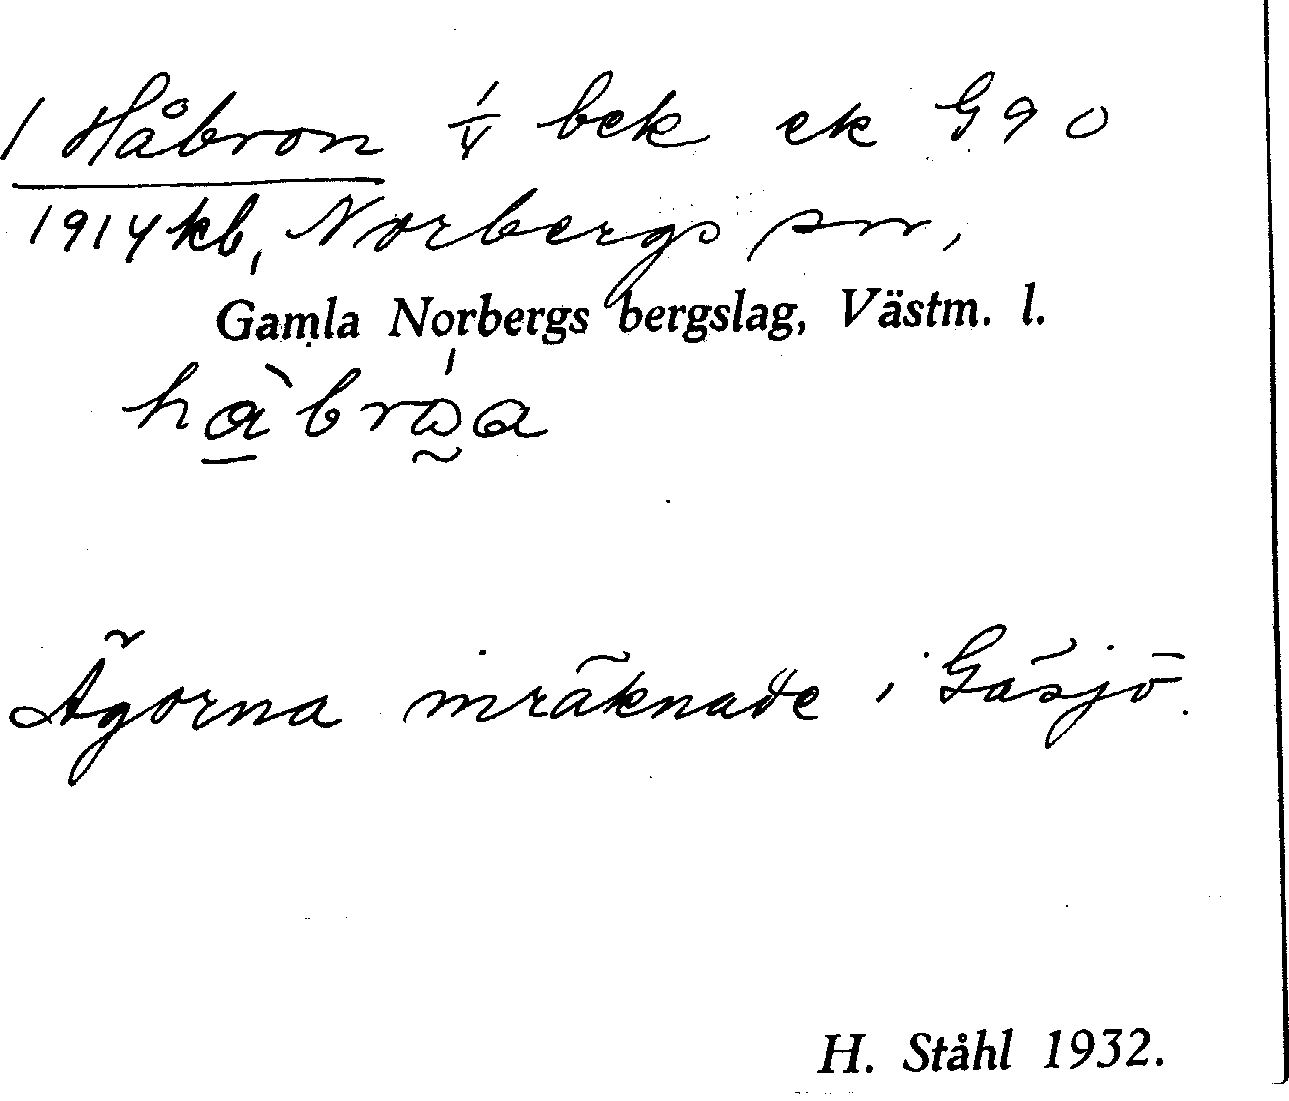 1 Håbron 1/V bek ek G 9 0
1914 kb, Norbergs sn,
Gamla Norbergs bergslag, Västm. l.
hàbróa
Ägorna inräknade i Gäsjö.
H. Ståhl 1932.